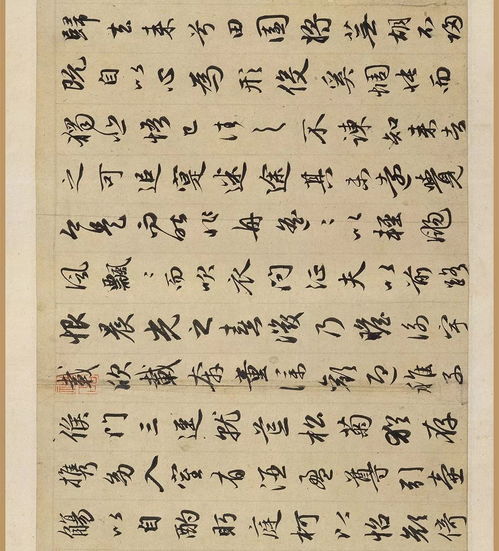 歸去來兮田園將蕪胡不歸
既自以心為形役奚惆悵而
獨悲悟已往之不諫知來者
之可追寔迷途其未遠覺
今是而昨非舟遙〻以輕颺
風飄〻而吹衣問征夫以前路
恨晨光之熹微乃瞻衡宇
載欣載奔童僕歡迎稚子
候門三逕就荒松菊猶存
攜幼入室有酒盈尊引壺
觴以自酌眄庭柯以怡顏倚